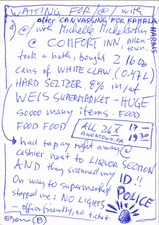 WAITING FOR /@/ with
after CANVASSING FOR KAMALA
HARRIS
@/ with Michelle Mickelstein
@ COMFORT INN, Allentown.
took a bath, bought 2 16 oz
cans of WHITE CLAW (0.47L)
HARD SELTZER 8% in/at
WEIS SUPERMARKET - HUGE
sooo many items. FOOD
FOOD FOOD
ALL 26 X
17 -
1930
had to pay right away @
cashier next to LIQUOR SECTION
AND they scanned my
ID!
On way to supermarket
POLICE
stopped me: NO LIGHTS
officer friendly, no ticket